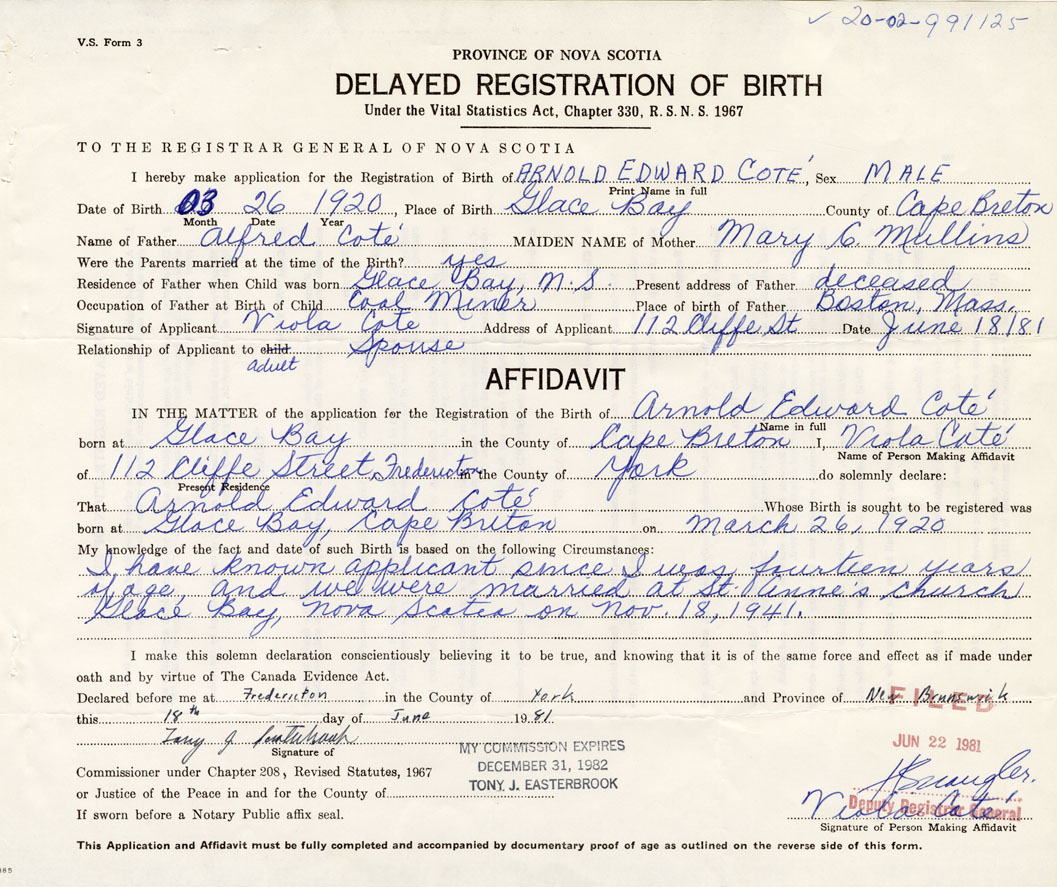 ✓ 20-02-991125
V.S. Form 3
PROVINCE OF NOVA SCOTIA
DELAYED REGISTRATION OF BIRTH
Under the Vital Statistics Act, Chapter 330, R.S.N.S. 1967
TO THE REGISTRAR GENERAL OF NOVA SCOTIA
I hereby make application for the Registration of Birth of ARNOLD EDWARD COTÉ, Sex MALE
Print Name in full
Date of Birth 03 26 1920, Place of Birth Glace Bay County of Cape Breton
Month Date Year
Name of Father Alfred Coté MAIDEN NAME of Mother Mary C. Mullins
Were the Parents married at the time of the Birth? yes
Residence of Father when Child was born Glace Bay, N.S. Present address of Father deceased
Occupation of Father at Birth of Child Coal Miner Place of birth of Father Boston, Mass.
Signature of Applicant Viola Coté Address of Applicant 112 Cliffe St Date June 18/81
Relationship of Applicant to child Spouse
adult
AFFIDAVIT
IN THE MATTER of the application for the Registration of the Birth of Arnold Edward Coté
Name in full
born at Glace Bay in the County of Cape Breton I, Viola Coté
Name of Person Making Affidavit
of 112 Cliffe Street, Fredericton in the County of York do solemnly declare:
Present Residence
That Arnold Edward Coté Whose Birth is sought to be registered was
born at Glace Bay, Cape Briton on March 26, 1920
My knowledge of the fact and date of such Birth is based on the following Circumstances:
I have known applicant since I was fourteen years
of age, and we were married at St. Anne's church
Glace Bay, Nova Scotia on Nov. 18, 1941.
I make this solemn declaration conscientiously believing it to be true, and knowing that it is of the same force and effect as if made under
oath and by virtue of The Canada Evidence Act.
Declared before me at Fredericton in the County of York and Province of New Brunswick
FILED
this 18th day of June 1981.
JUN 22 1981
Tony J Easterbrook
Signature of
MY COMMISSION EXPIRES
DECEMBER 31, 1982
TONY J. EASTERBROOK
Commissioner under Chapter 208, Revised Statutes, 1967
or Justice of the Peace in and for the County of
Deputy Registrar General
Viola Coté
If sworn before a Notary Public affix seal.
Signature of Person Making Affidavit
This Application and Affidavit must be fully completed and accompanied by documentary proof of age as outlined on the reverse side of this form.